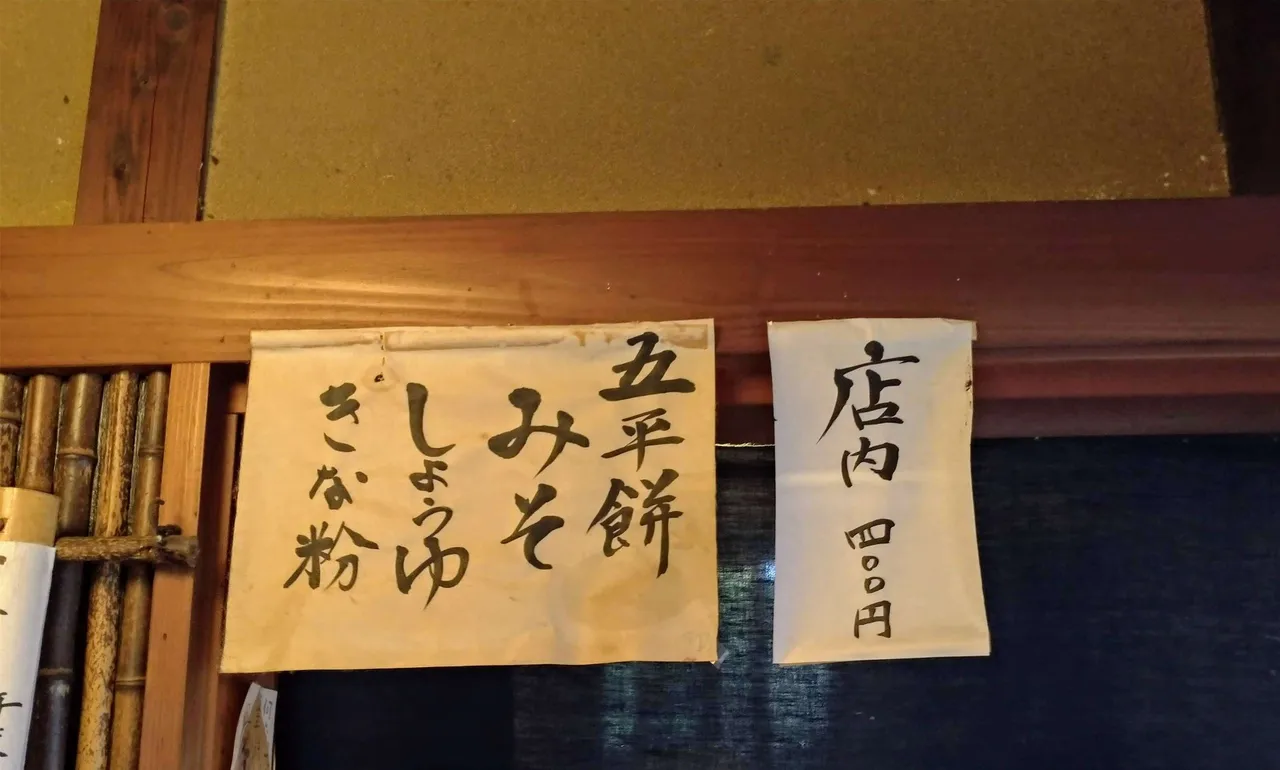 店内 四〇〇円
五平餅
みそ
しょうゆ
きな粉